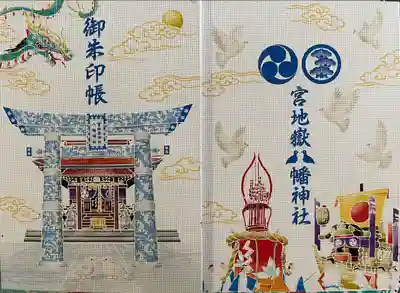 御朱印帳
宮地嶽八幡神社